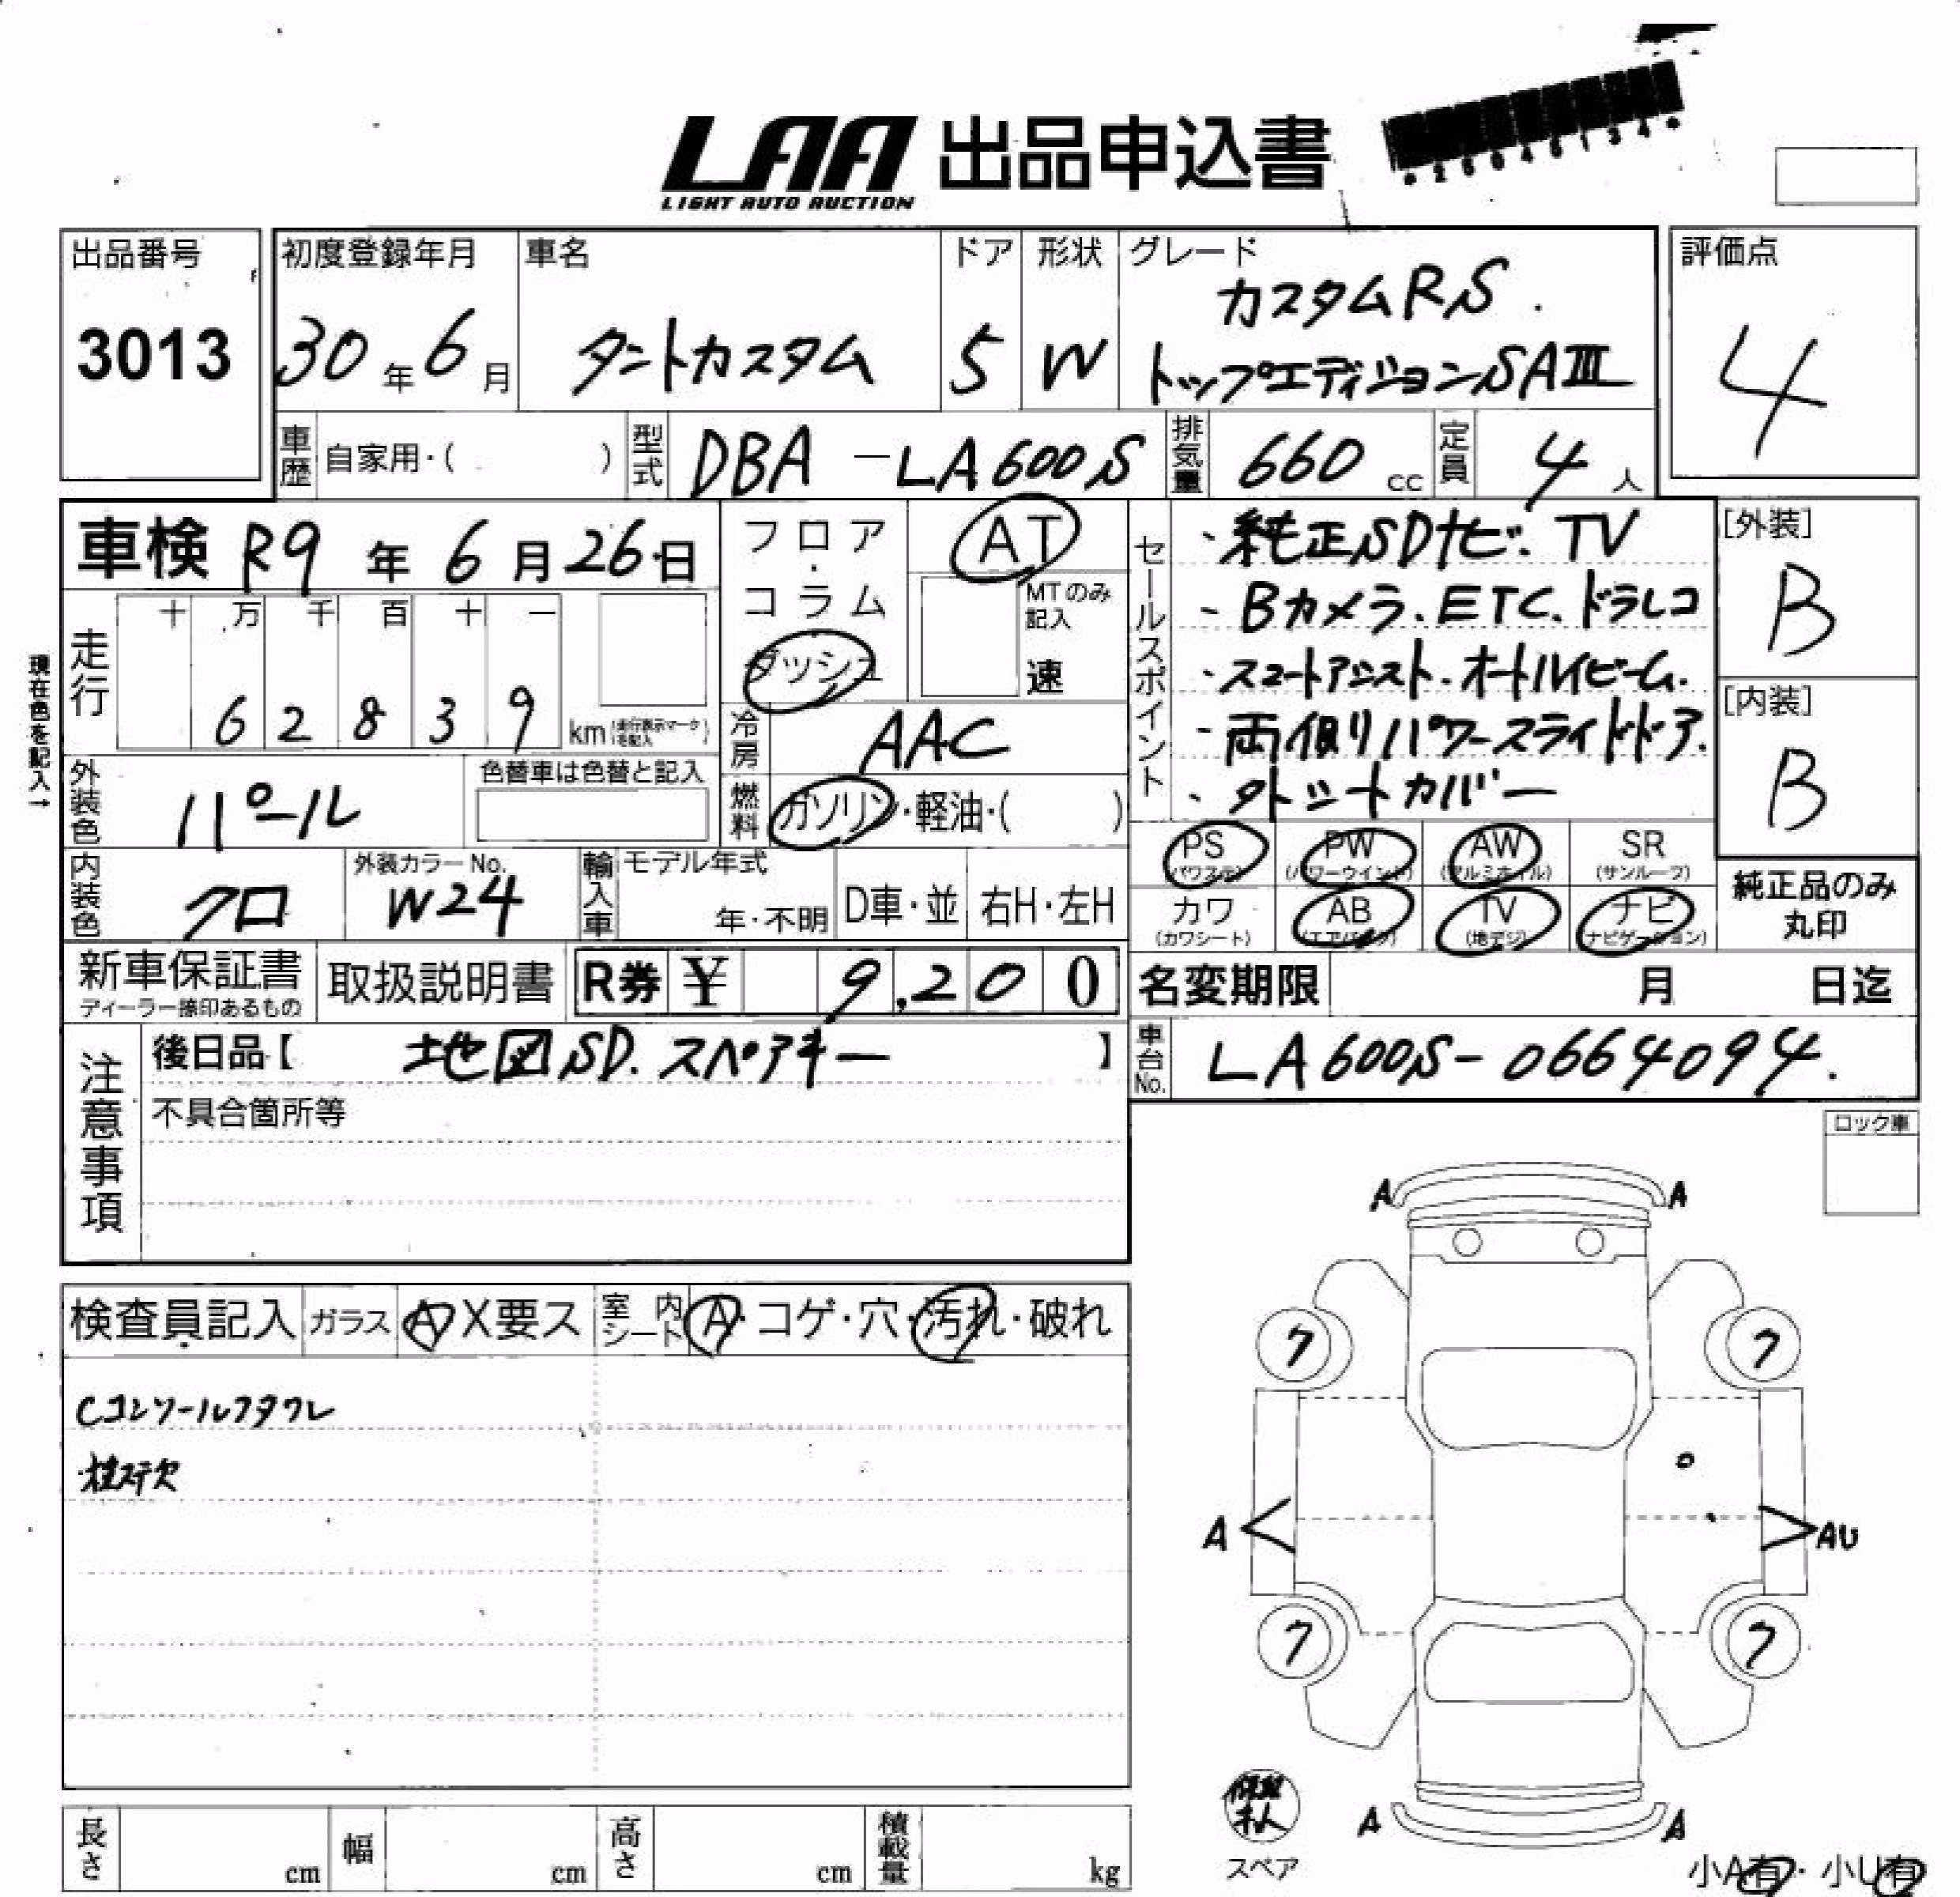 LAA 出品申込書
LIGHT AUTO AUCTION
出品番号
3013
初度登録年月
30年6月
車名
タントカスタム
ドア
5
形状
W
グレード
カスタムRS.
トップエディションSAⅢ
評価点
4
車歴 自家用・( )
型式 DBA-LA600S
排気量 660 cc
定員 4人
車検 R9年6月26日
フロア・コラム
ダッシュ
AT
MTのみ記入
速
走行
十 万 千 百 十 一
6 2 8 3 9 km(走行表示マークを記入)
現在色を記入→
冷房 AAC
燃料 ガソリン・軽油・( )
外装色 パール
色替車は色替と記入
内装色 クロ
外装カラーNo. W24
輸入車 モデル年式
年・不明 D車・並 右H・左H
セールスポイント
・純正SDナビ.TV
・Bカメラ.ETC.ドラレコ
・スマートアシスト.オートハイビーム.
・両側パワースライドドア.
[外装]
B
[内装]
B
PS (パワステ)
PW (パワーウインド)
AW (アルミホイル)
SR (サンルーフ)
カワ (カワシート)
AB (エアバック)
TV (地デジ)
ナビ (ナビゲーション)
純正品のみ
丸印
新車保証書
ディーラー捺印あるもの
取扱説明書
R券 ¥ 9,200
名変期限 月 日迄
車台No. LA600S-0664094.
注意事項
後日品【 地図SD.スペアキー 】
不具合箇所等
ロック車
検査員記入 ガラス A X要ス
室内シート A・コゲ・穴・汚れ・破れ
Cコンソールフタワレ
A A
7 7
A AU
7 7
A A
スペア
小A有・小U有
長さ cm
幅 cm
高さ cm
積載量 kg